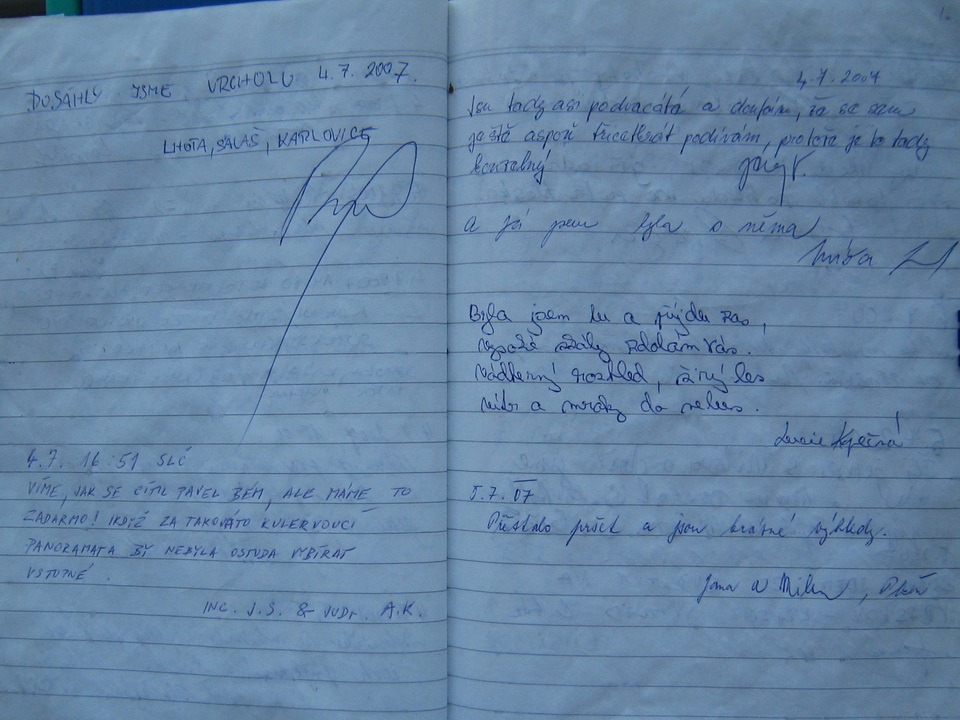 DOSÁHLY JSME VRCHOLU 4.7.2007.
LHOTA, SALAŠ, KARLOVICE
4.7. 16:51 SLČ
VÍME, JAK SE CÍTIL PAVEL BÉM, ALE MÁME TO
ZADARMO! IKDYŽ ZA TAKOVÁTO KULERVOUCÍ
PANORAMATA BY NEBYLA OSTUDA VYBÍRAT
VSTUPNÉ.
ING. J.S. & JUDr. A.K.
4.7.2007
Jsu tady asi podvacátá a doufám, že se sem
ještě aspoň třicetkrát podívám, protože je to tady
a já jsem byla s něma
Byla jsem tu a přijdu zas,
vysoké skály zdolám vás.
Nádherný rozhled, širý les
vítr a mraky do nebes.
Lucie
5.7. 07
Přestalo pršet a jsou krásné výhledy.
Jana a Milan, Plzeň